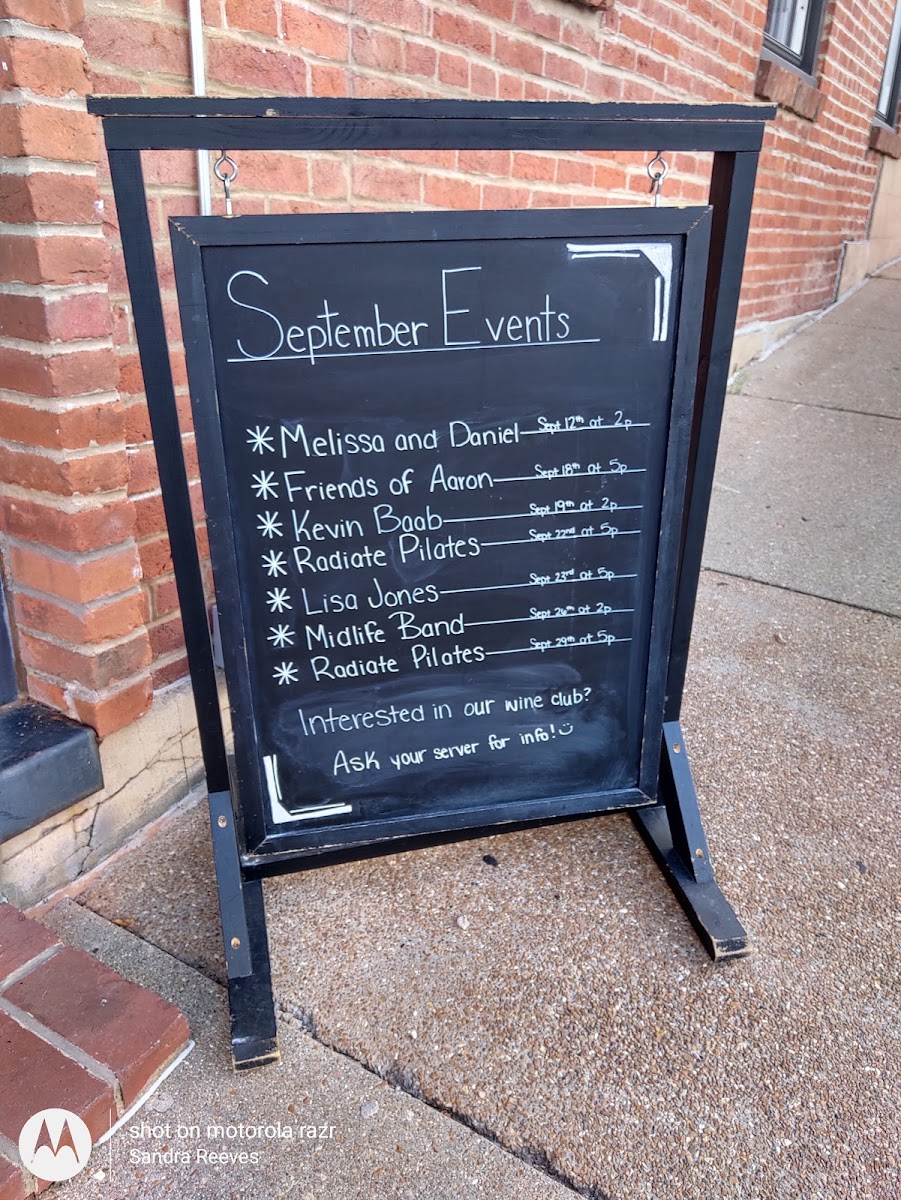 September Events
* Melissa and Daniel — Sept 12th at 2p
* Friends of Aaron — Sept 18th at 5p
* Kevin Baab — Sept 19th at 2p
* Radiate Pilates — Sept 22nd at 5p
* Lisa Jones — Sept 23rd at 5p
* Midlife Band — Sept 26th at 2p
* Radiate Pilates — Sept 29th at 5p
Interested in our wine club?
Ask your server for info!
shot on motorola razr
Sandra Reeves